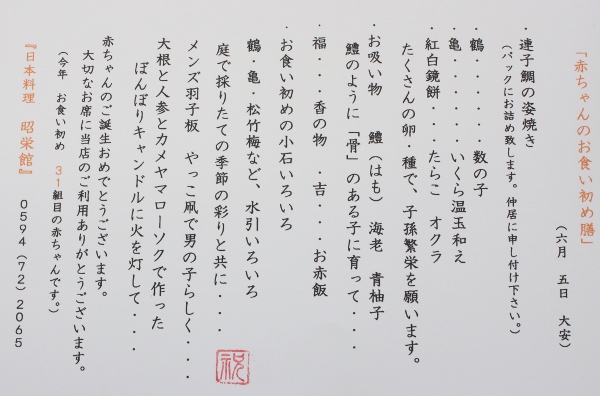 「赤ちゃんのお食い初め膳」
（六月　五日　大安）
・連子鯛の姿焼き
（パックにお詰め致します。仲居に申し付け下さい。）
・鶴・・・・・・数の子
・亀・・・・・・いくら温玉和え
・紅白鏡餅・・・たらこ　オクラ
たくさんの卵・種で、子孫繁栄を願います。
・お吸い物　鱧（はも）　海老　青柚子
鱧のように「骨」のある子に育って・・・
・福・・・香の物　・吉・・・お赤飯
・お食い初めの小石いろいろ
鶴・亀・松竹梅など、水引いろいろ
庭で採りたての季節の彩りと共に・・・
メンズ羽子板　やっこ凧で男の子らしく・・・
大根と人参とカメヤマローソクで作った
ぼんぼりキャンドルに火を灯して・・・
赤ちゃんのご誕生おめでとうございます。
大切なお席に当店のご利用ありがとうございます。
（今年　お食い初め　３１組目の赤ちゃんです。）
『日本料理　昭栄館』　０５９４（７２）２０６５
祝